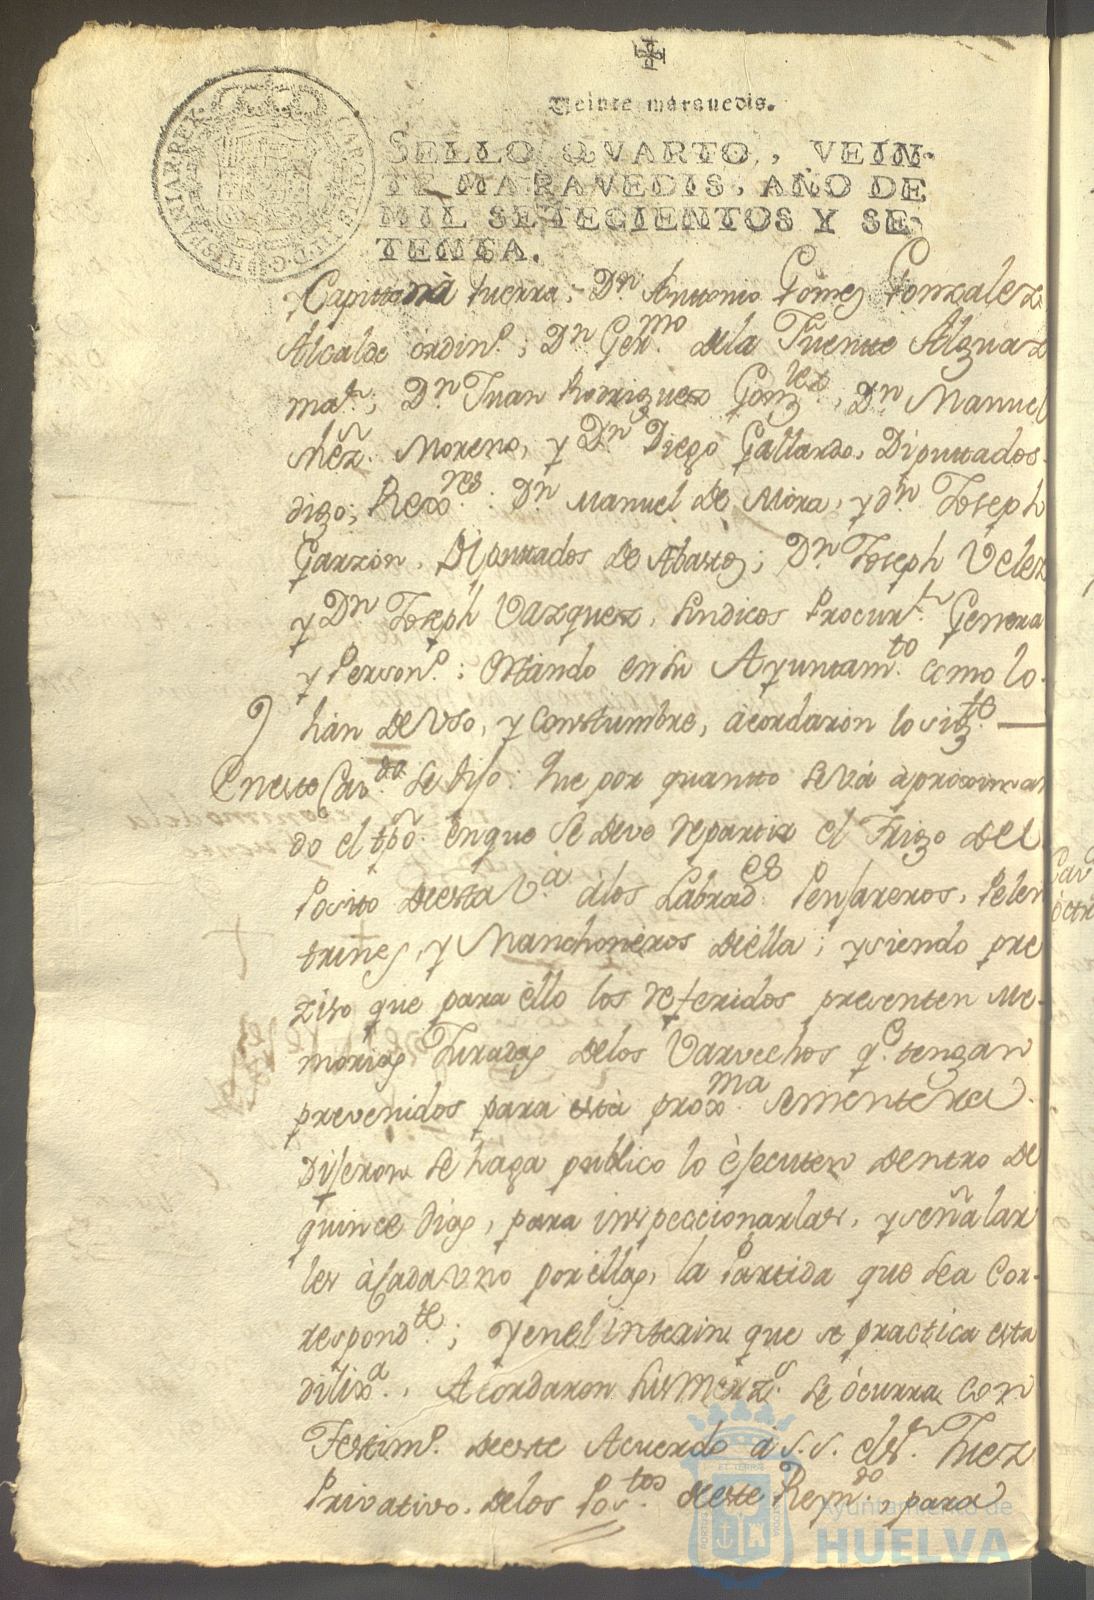 Veinte maravedis.
SELLO QVARTO, VEIN-
TE MARAVEDIS, AÑO DE
MIL SETECIENTOS Y SE-
TENTA.
CAROLUS III D G HISPANIAR REX
Capitan à Guerra; Dn Antonio Gomez Gonzalez
Alcalde ordin.o; Dn Ger.mo de la Fuente Alguaz
ma.r; Dn Juan Rodriguez Gonz.lez, Dn Manuel
Moreno, y Dn Diego Gallardo, Diputados
digo, Rex.res: Dn Manuel de Mora, y dn Joseph
Garzon, Diputados de Abastos; Dn Joseph Velez
y Dn Joseph Vazquez, Sindicos Procur.r Genera
y Person.o: Estando en su Ayuntam.to como lo
han de Vso, y Constumbre, acordaron lo sig.te
En este Cav.do Se dijo: Que por quanto se và àproximan
do el tpõ. en que se deve repartir el Trigo del
Posito de esta V.a à los Labrad.es Penjareros, Pelen
trines, y Manchoneros de ella; y siendo pre
ziso que para èllo los referidos presenten Me-
morias Juradas de los Varvechos q.e tengan
prevenidos para esta prox.ma Sementera
Dijeron se haga publico lo èjecuten dentro de
quince dias, para inspeccionarlas, y señalar
les à Cada Vno por èllas, la Partida que sea Cor-
respond.te; y en el interin que se practica esta
dilix.a, Acordaron Sus Merz.s se òcurra con
Testim.o de este Acuerdo à S.S. el S.r Juez
Privativo de los Pos.tos de este Reyn.do, para
Cav
Ayuntamiento de
HUELVA